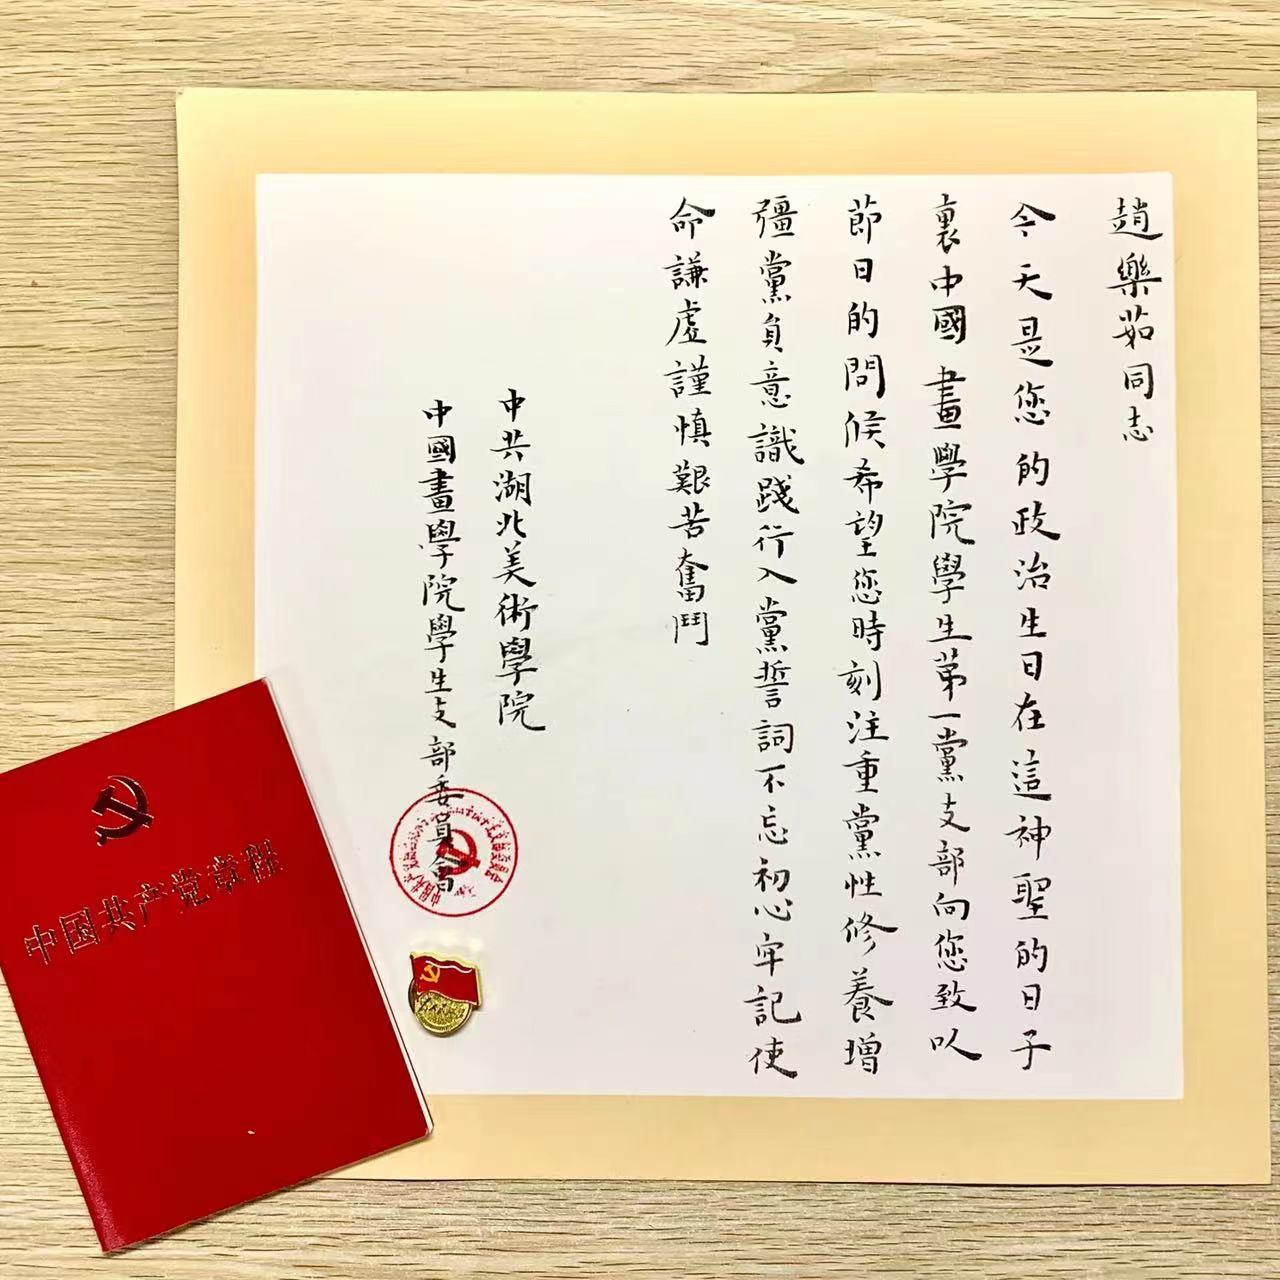 趙樂茹同志
今天是您的政治生日在這神聖的日子
裏中國畫學院學生第一黨支部向您致以
節日的問候希望您時刻注重黨性修養增
彊黨員意識踐行入黨誓詞不忘初心牢記使
命謙虛謹慎艱苦奮鬥
中共湖北美術學院
中國畫學院學生支部委員會
中国共产党章程